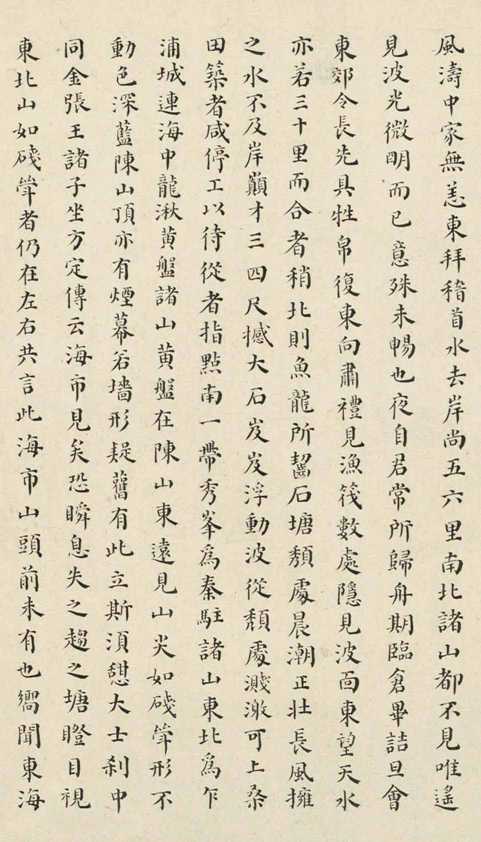 風濤中家無恙東拜稽首水去岸尚五六里南北諸山都不見唯遙
見波光微明而已意殊未暢也夜自君常所歸舟期臨倉畢詰旦會
東郊令長先具牲帛復東向肅禮見漁筏數處隱見波面東望天水
亦若三十里而合者稍北則魚龍所齧石塘頹處晨潮正壯長風擁
之水不及岸巔才三四尺撼大石岌岌浮動波從頹處濺潋可上桑
田築者咸停工以待從者指點南一帶秀峯爲秦駐諸山東北爲乍
浦城連海中龍湫黄盤諸山黄盤在陳山東遠見山尖如碊聳形不
動色深藍陳山頂亦有煙幕若墻形疑舊有此立斯湏憇大士刹中
同金張王諸子坐方定傳云海市見矣恐瞬息失之趨之塘瞪目視
東北山如碊聳者仍在左右共言此海市山頭前未有也嚮聞東海